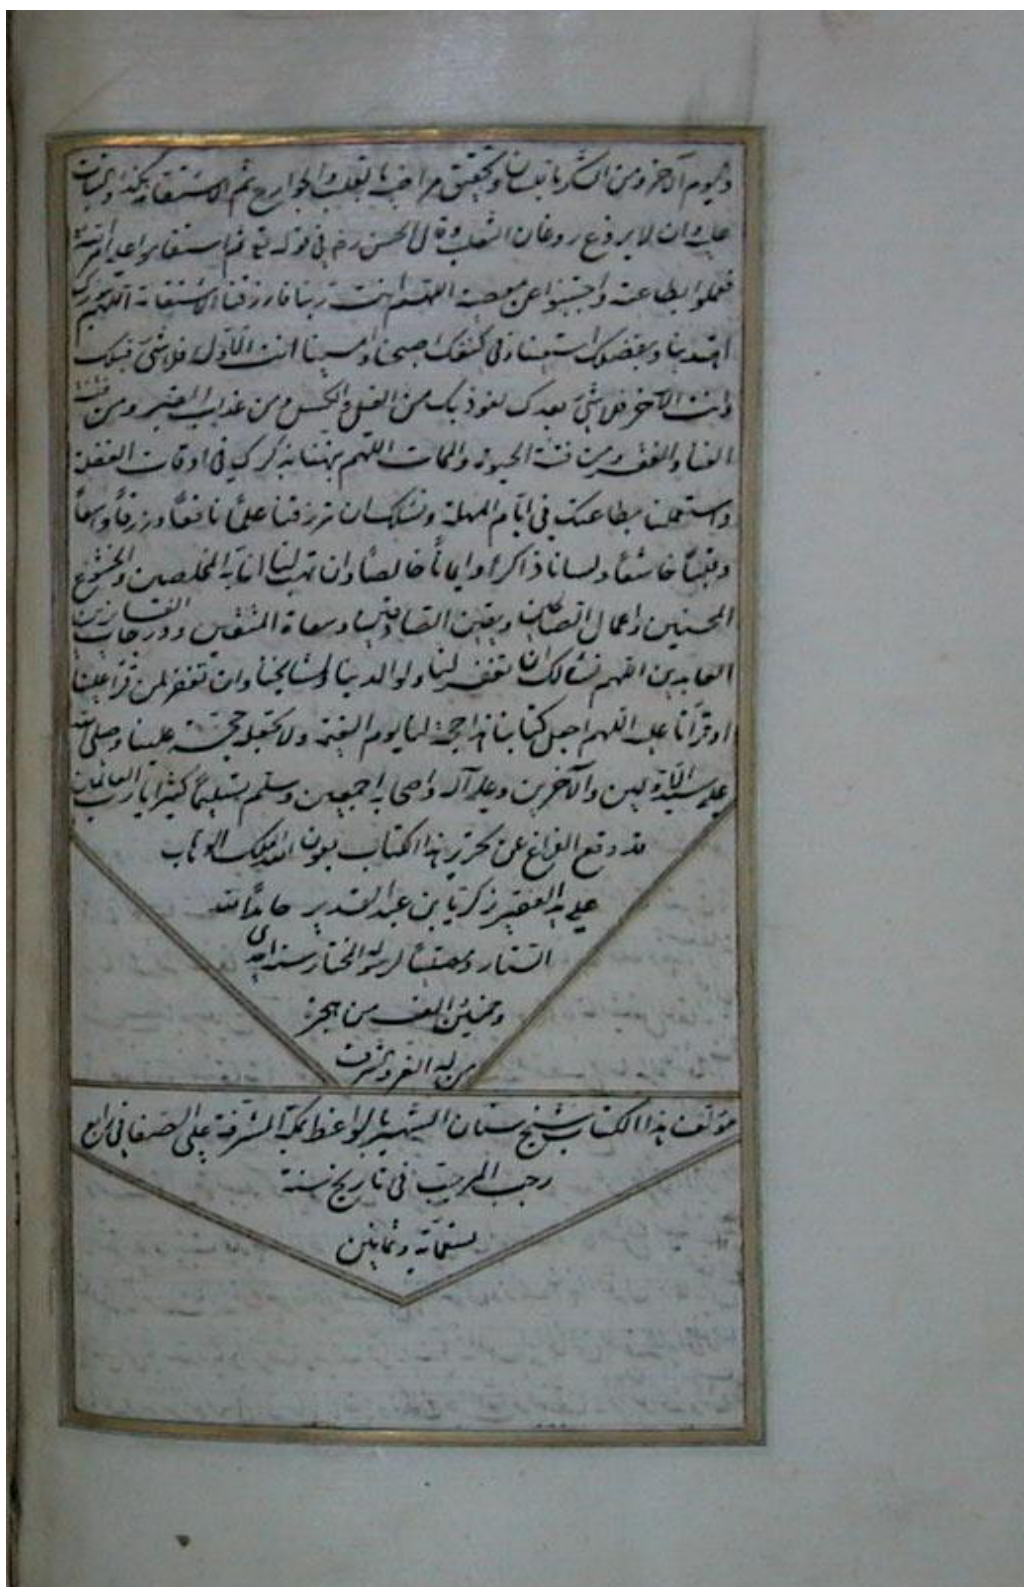 واليوم الآخر ومن الشكر باللسان وتحقيق مراضيه بالقلب والجوارح ثم الاستقامة هكذا والثبات
عليه وان لا يروغ روغان الثعلب وقال الحسن رح في قوله تع ثم استقاموا على امر الله
فعملوا بطاعته واجتنبوا عن معصيته اللهم انت ربنا فارزقنا الاستقامة اللهم بنورك
اهتدينا وبفضلك استغنينا وفي كنفك اصبحنا وامسينا انت الاول فلا شئ قبلك
وانت الآخر فلا شئ بعدك نعوذ بك من الفشل والكسل ومن عذاب القبر ومن فتنة
الغنا والفقر ومن فتنة الحيوة والممات اللهم نبهنا بذكرك في اوقات الغفلة
واستعملنا بطاعتك في ايام المهلة ونسئلك ان ترزقنا علمًا نافعًا ورزقًا واسعًا
وقلبًا خاشعًا ولسانا ذاكرا وايمانًا خالصًا وان تهب لنا انابة المخلصين وخشوع
المحسنين واعمال الصالحين ويقين الصادقين وسعادة المتقين ودرجات الفائزين
العابدين اللهم نسالك ان تغفر لنا ولوالدينا ولمشايخنا وان تغفر لمن قرأ علينا
او قرأنا عليه اللهم اجعل كتابنا هذا حجة لنا يوم القيمة ولا تجعله حجة علينا وصلى الله
على سيد الاولين والآخرين وعلى آله واصحابه اجمعين وسلم تسليمًا كثيرا يا رب العالمين
قد وقع الفراغ عن تحرير هذا الكتاب بعون الله الملك الوهاب
على يد الفقير زكريا بن عبد القدير حامدًا لله
الستار ومصليًا لرسوله المختار سنه احدى
وخمسين والف من هجرة
من له العز والشرف
مؤلف هذا الكتاب شيخ سنان الشهير بالواعظ بمكة المشرفة على رابع
رجب المرجب في تاريخ سنة
تسعمائة وثمانين